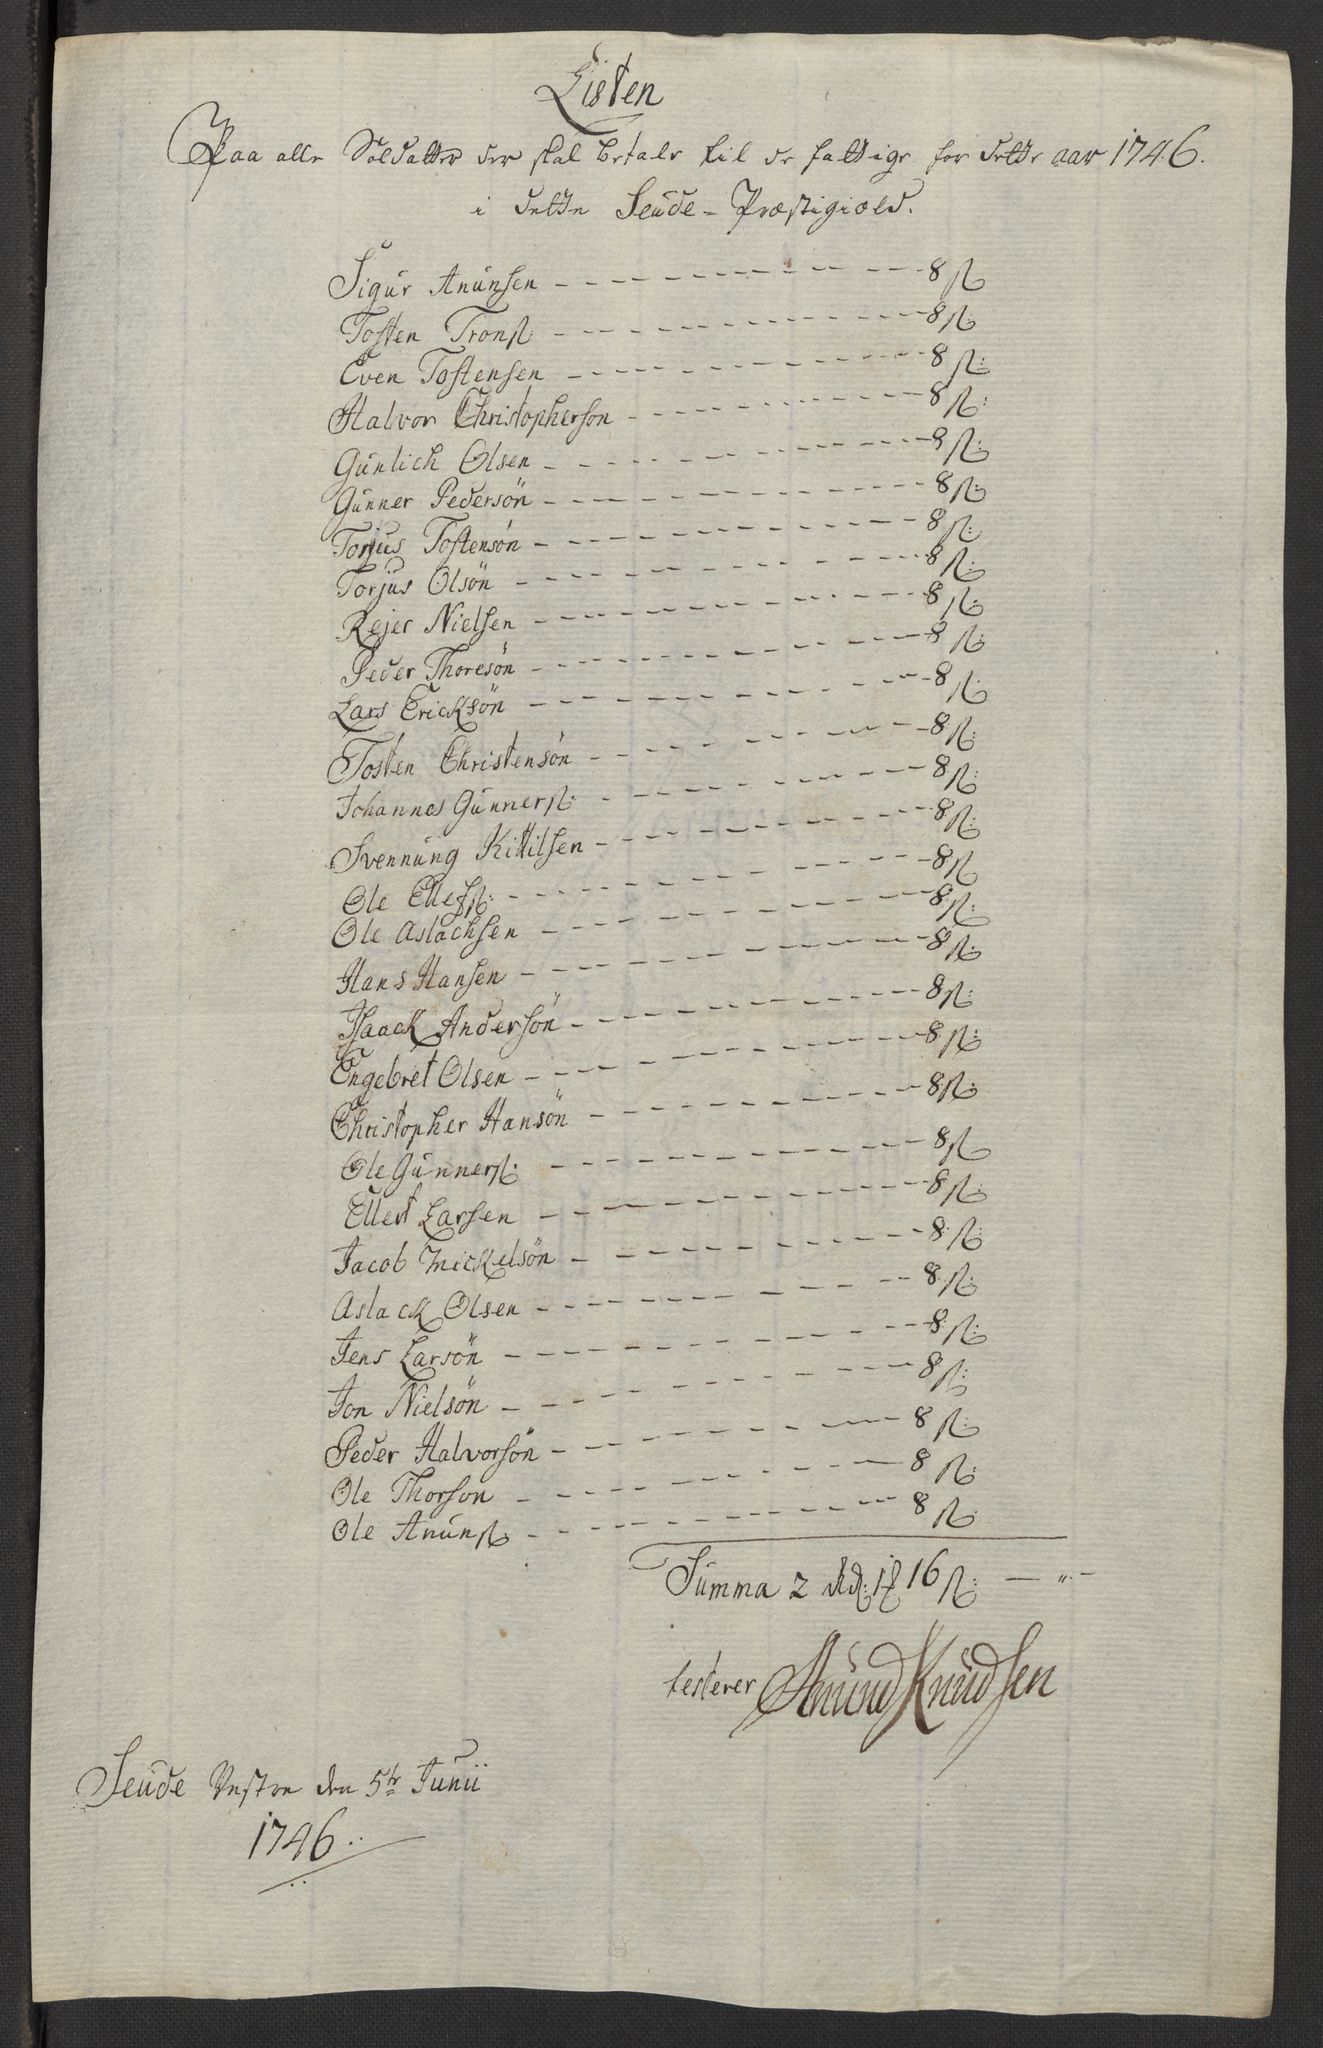 Listen
Paa alle Soldatter der skal betale til de fattige for dette aar 1746.
i dette Seude = Præstigield.
Sigur Anunsen - - - 8 ß
Tosten Tronß: - - - 8 ß:
Even Tostensen - - - 8 ß:
Halvor Christopherson - - - 8 ß:
Gunlich Olsen - - - 8 ß:
Gunner Pedersön - - - 8 ß:
Torjus Tostensön - - - 8 ß:
Torjus Olsön - - - 8 ß:
Rejer Nielsen - - - 8 ß:
Peder Thoresön - - - 8 ß:
Lars Ericksön - - - 8 ß:
Tosten Christensön - - - 8 ß:
Johannes Gunnerß: - - - 8 ß:
Svennung Kittilsen - - - 8 ß:
Ole Ellefß: - - - 8 ß
Ole Aslachsen - - - 8 ß:
Hans Hansen - - - 8 ß:
Isaack Andersön - - - 8 ß:
Engebret Olsen - - - 8 ß:
Christopher Hansön - - - 8 ß:
Ole Gunnerß: - - - 8 ß
Ellert Larsen - - - 8 ß:
Jacob Mickelsön - - - 8 ß:
Aslack Olsen - - - 8 ß:
Jens Larsön - - - 8 ß:
Jon Nielsön - - - 8 ß:
Peder Halvorsön - - - 8 ß:
Ole Thorson - - - 8 ß:
Ole Anunß: - - - 8 ß:
Summa 2 rd: 1 ℔ 16 ß: — " —
testerer Anund Knudsen
Seude Vestre den 5te Junii
1746